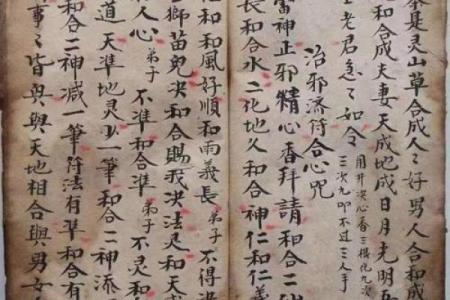 本是灵山草合成人〻好男人合和成
女和合成夫妻天成地成日月光明
上老君急〻如令
用井决心香三根化九次
三次九叩不过三人手
治邪济符合心咒
雷神止邪精心香拜請和合二仙
長和合水二化地久和合神仁和仁義
仁和和風好順和雨義長弟子不得决
上獅苗免决和合賜我决法是和天
人心弟子不準和合準弟子不灵和
道天準地灵少一筆和合二神添
和合二神减一筆符法有準和合有
事〻皆與與天地相合與男女